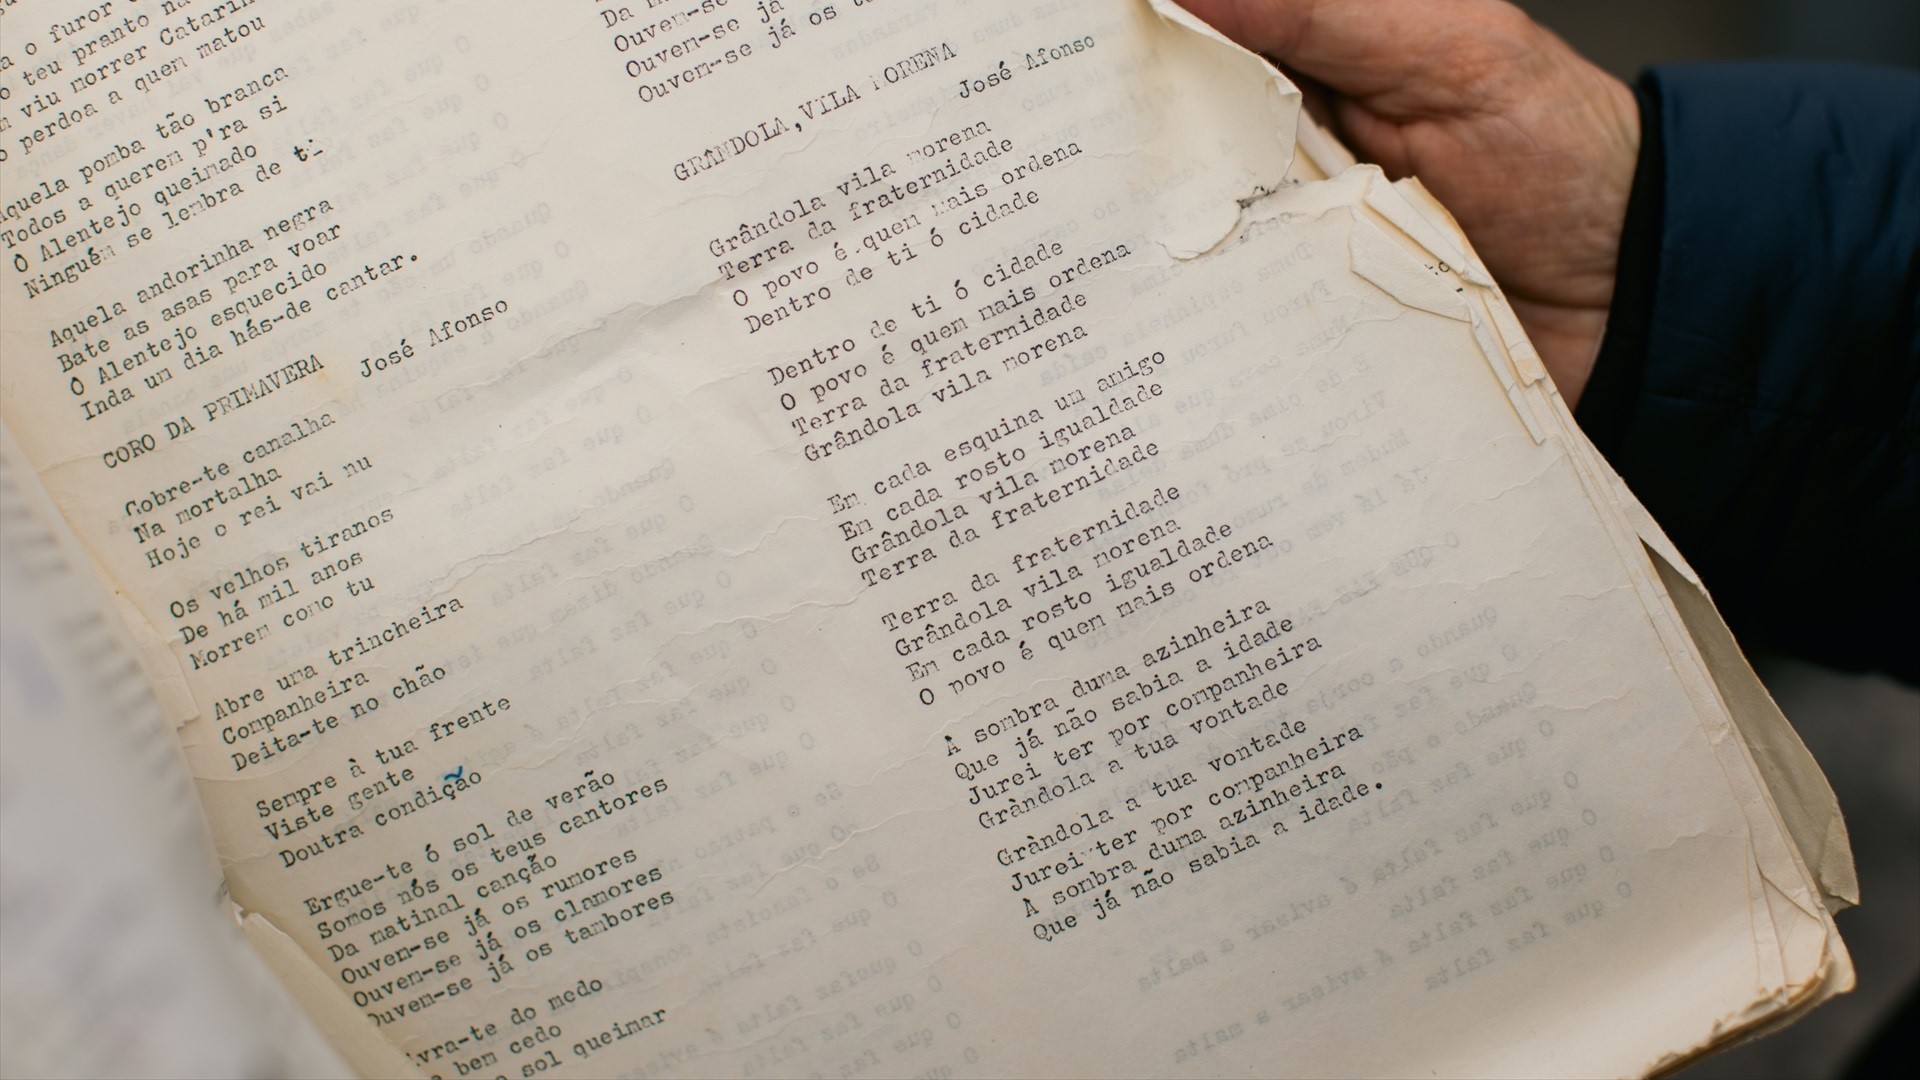 o furor
o teu pranto
viu morrer Catarin
perdoa a quem matou
Aquela pomba tão branca
Todos a querem p'ra si
Ó Alentejo queimado
Ninguém se lembra de ti
Aquela andorinha negra
Bate as asas para voar
Ó Alentejo esquecido
Inda um dia hás-de cantar.
CORO DA PRIMAVERA José Afonso
Cobre-te canalha
Na mortalha
Hoje o rei vai nu
Os velhos tiranos
De há mil anos
Morrem como tu
Abre uma trincheira
Companheira
Deita-te no chão
Sempre à tua frente
Viste gente
Doutra condição
Ergue-te ó sol de verão
Somos nós os teus cantores
Da matinal canção
Ouvem-se já os rumores
Ouvem-se já os clamores
Ouvem-se já os tambores
ivra-te do medo
bem cedo
o sol queimar
Da
Ouvem-se
Ouvem-se já
Ouvem-se já os
GRÂNDOLA,VILA MORENA
José Afonso
Grândola vila morena
Terra da fraternidade
O povo é quem mais ordena
Dentro de ti ó cidade
Dentro de ti ó cidade
O povo é quem mais ordena
Terra da fraternidade
Grândola vila morena
Em cada esquina um amigo
Em cada rosto igualdade
Grândola vila morena
Terra da fraternidade
Terra da fraternidade
Grândola vila morena
Em cada rosto igualdade
O povo é quem mais ordena
À sombra duma azinheira
Que já não sabia a idade
Jurei ter por companheira
Gràndola a tua vontade
Gràndola a tua vontade
Jurei ter por companheira
À sombra duma azinheira
Que já não sabia a idade.